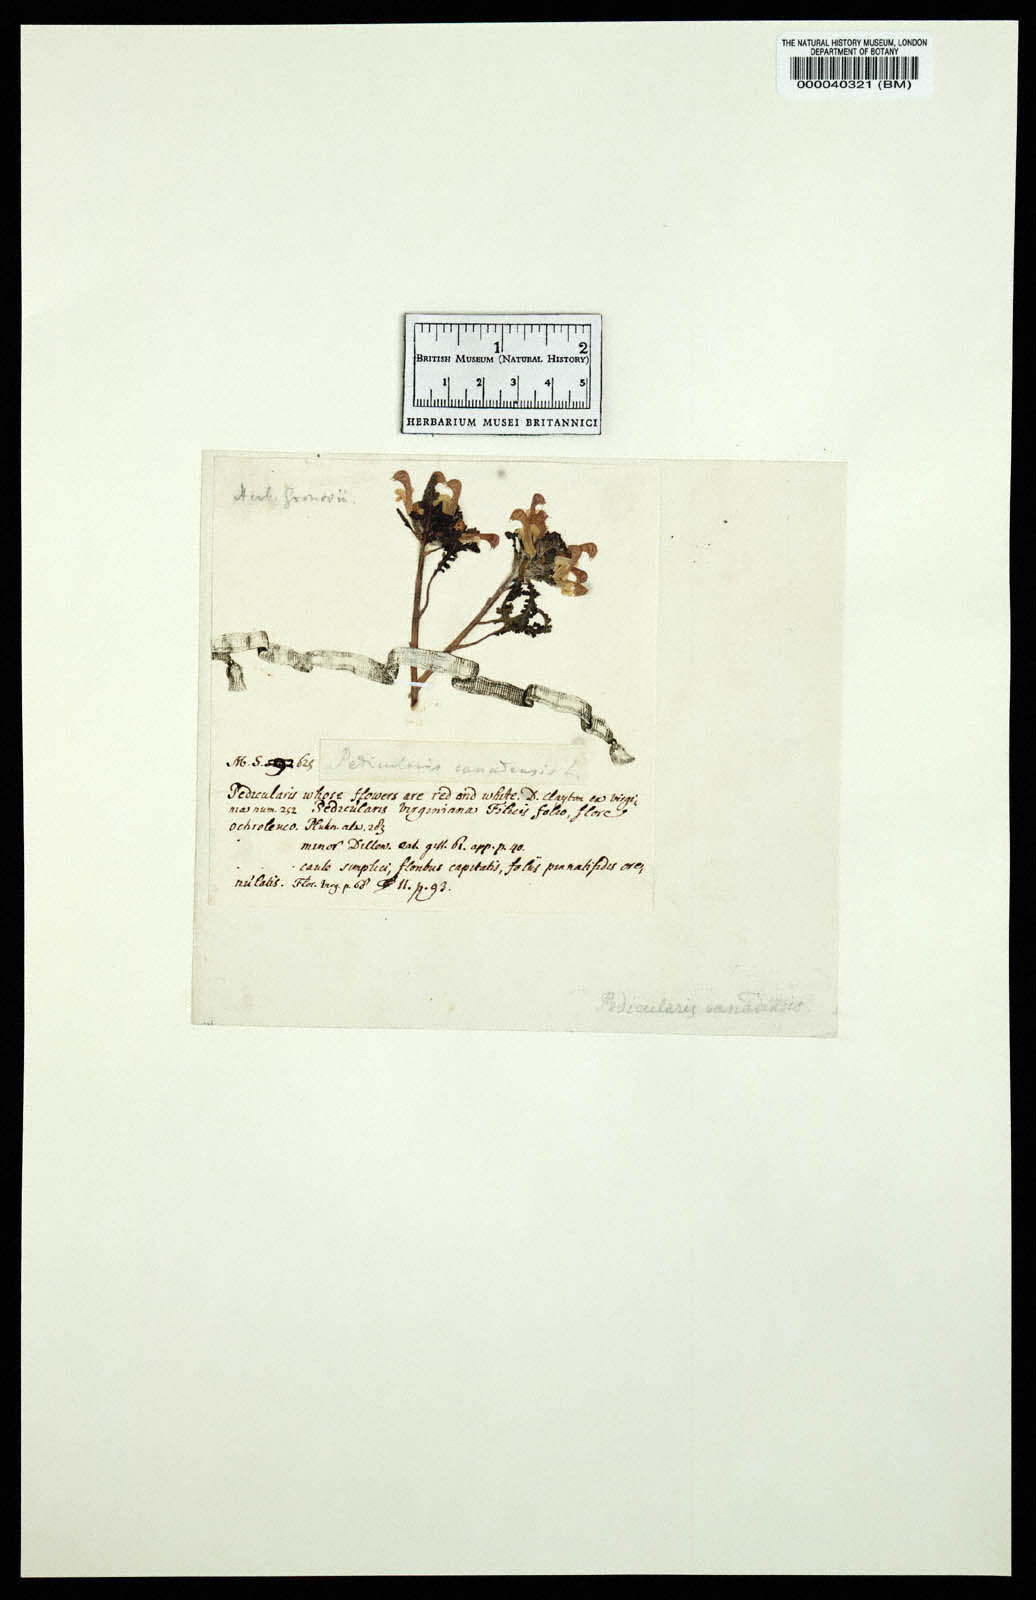 THE NATURAL HISTORY MUSEUM, LONDON
DEPARTMENT OF BOTANY
000040321 (BM)
1 2
BRITISH MUSEUM (NATURAL HISTORY)
1 2 3 4 5
HERBARIUM MUSEI BRITANNICI
Herb. Gronovii.
M. S. 625
Pedicularis canadensis L.
Pedicularis whose flowers are red and white. D. Clayton ex virgi,
nia num. 252 Pedicularis Virginiana Filicis folio, flore
ochroleuco. Pluhn. alm. 283
minor Dillen. cat. giss. app. p. 40.
caule simplici, floribus capitatis, foliis pinnatifidis cre,
nulatis. Flor. Virg. p. 68 II. p. 93.
Pedicularis canadensis.